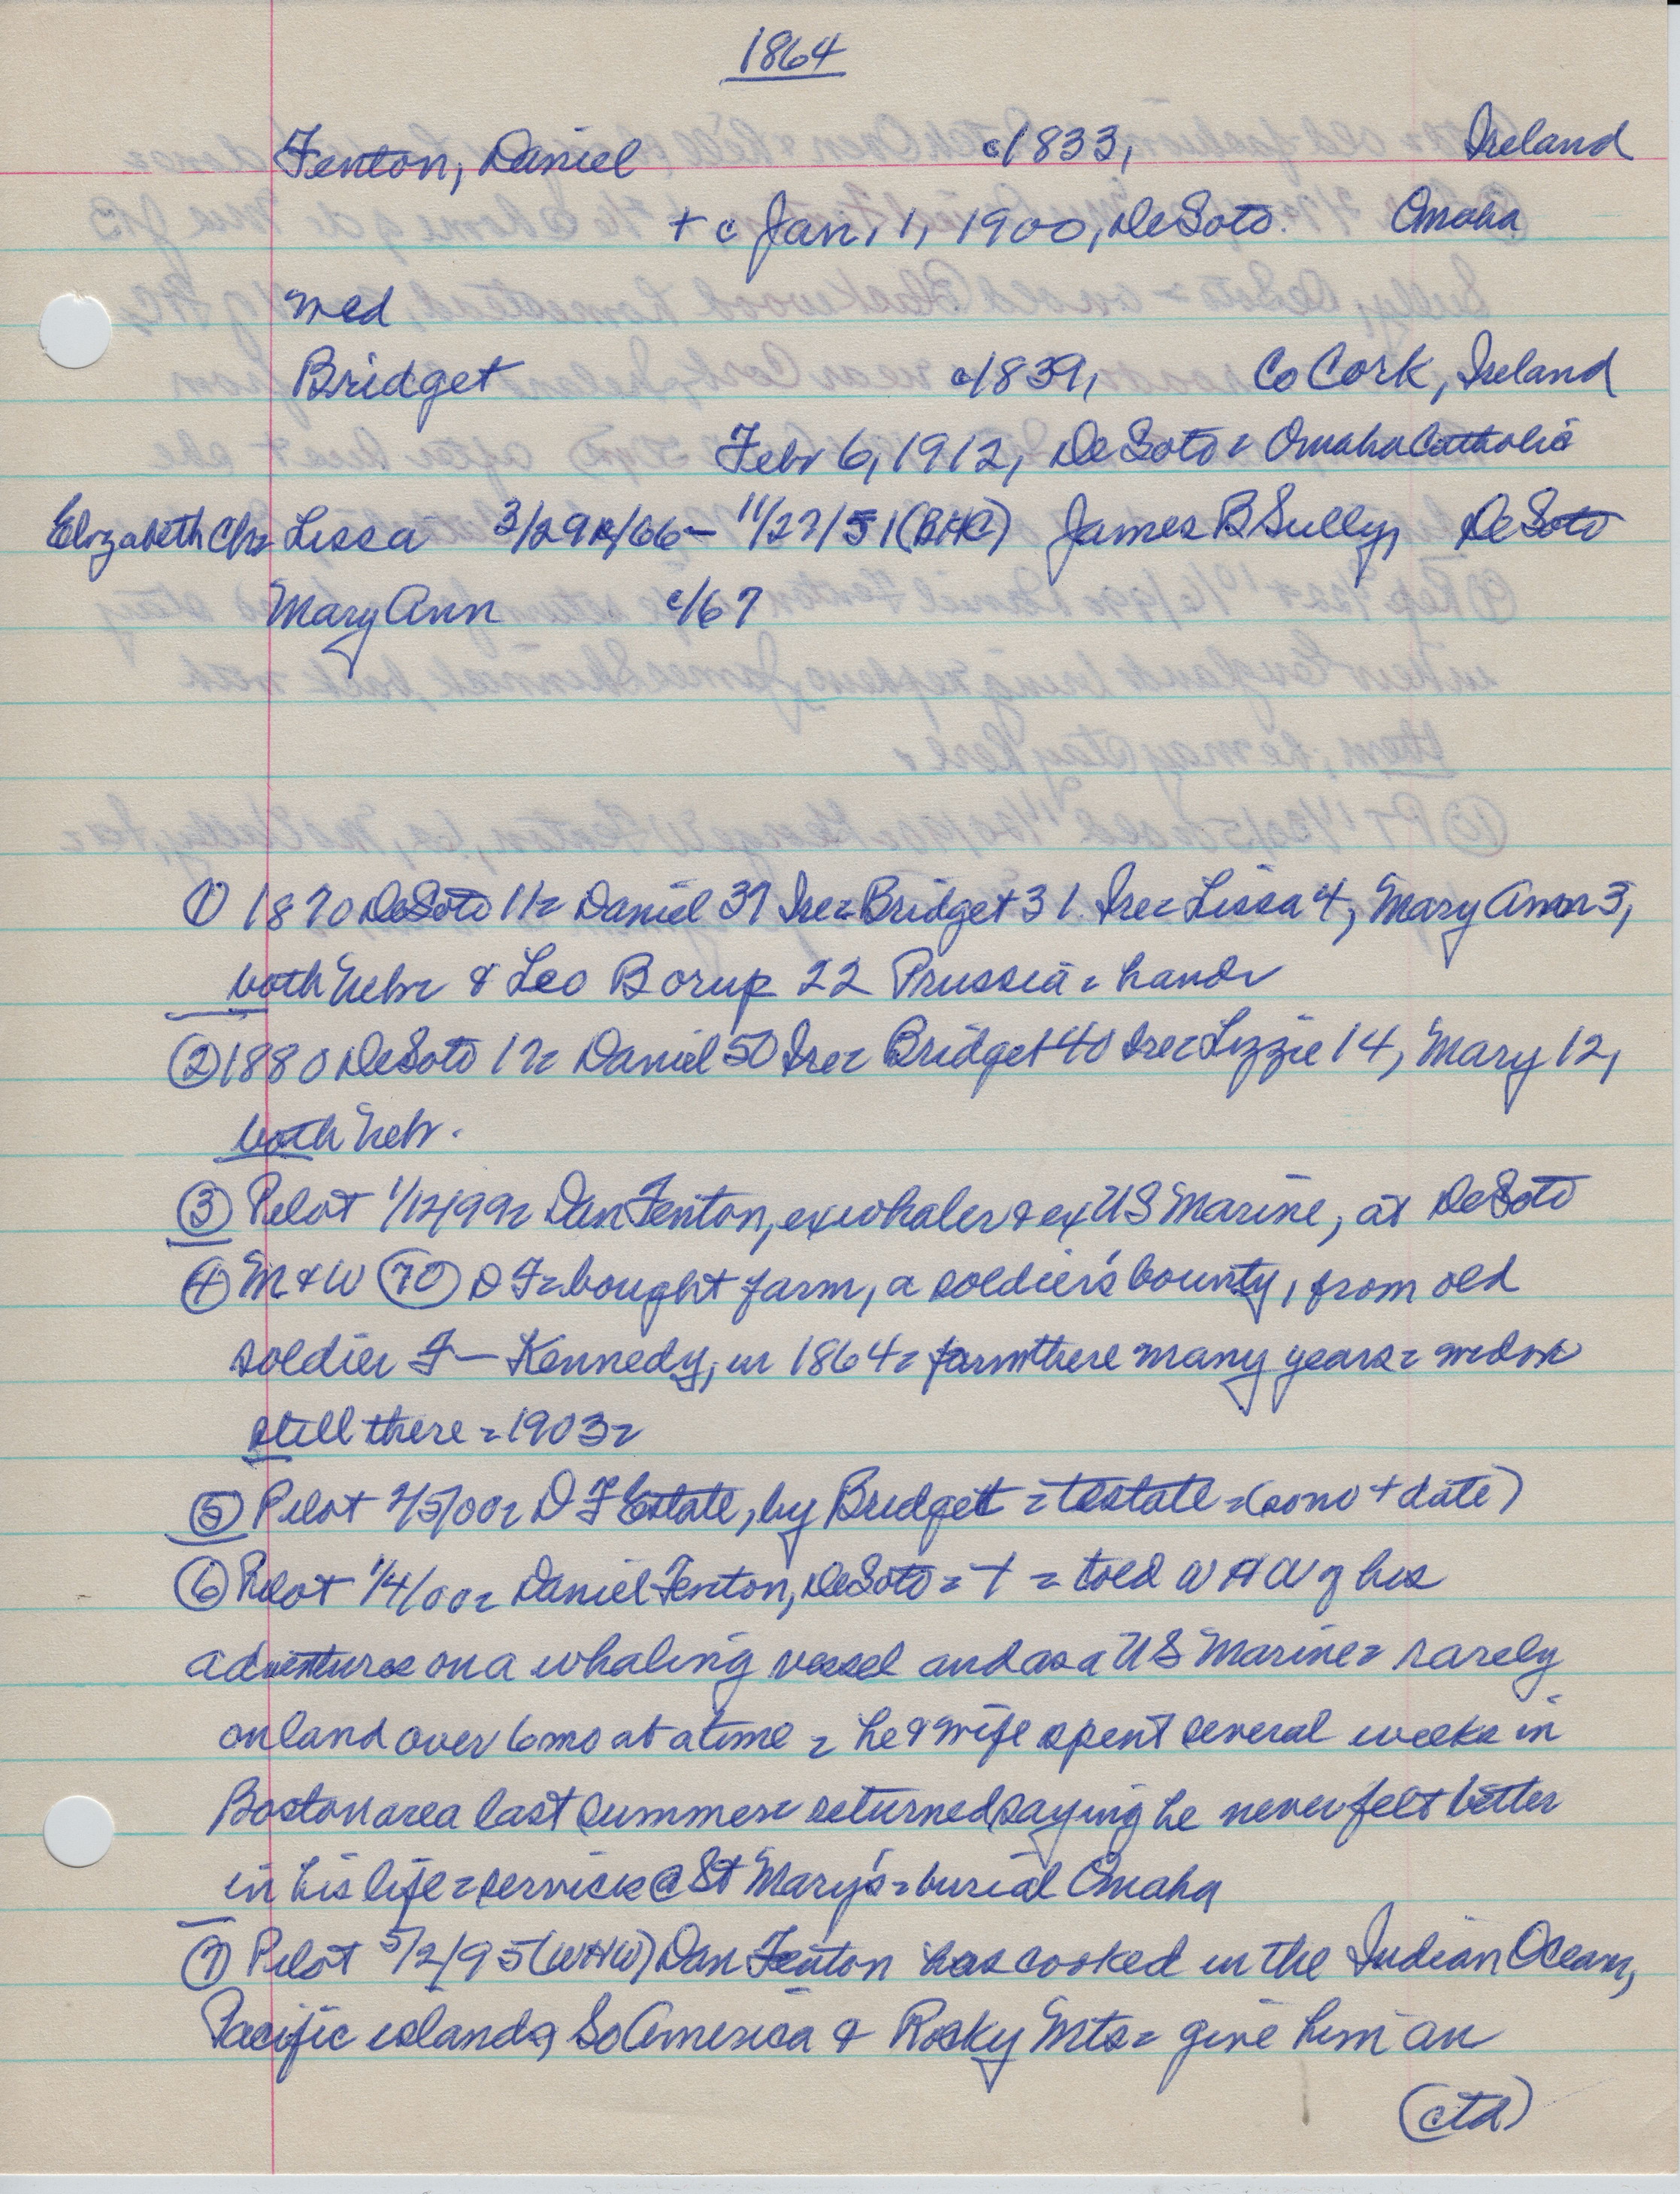 1864
Fenton, Daniel c/1833, Ireland
+ c Jan, 1, 1900, DeSoto. Omaha
med
Bridget c/1839, Co Cork, Ireland
Febr 6, 1912, DeSoto = Omaha Catholic
Elizabeth Lissa 3/29/66 - 11/27/51 James B Sully, DeSoto
Mary Ann c/67
① 1870 DeSoto 11= Daniel 37 Ire= Bridget 31 Ire= Lissa 4, Mary Ann 3,
both Nebr & Leo Borup 22 Prussia = hand
② 1880 DeSoto 12= Daniel 50 Ire= Bridget 40 Ire= Lizzie 14, Mary 12,
both Nebr.
③ Pilot 1/12/99= Dan Fenton, exwhaler & ex US Marine, at DeSoto
④ M & W (70) D F= bought farm, a soldier's bounty, from old
soldier F— Kennedy, in 1864 = farm there many years = widow
still there = 1903=
⑤ Pilot 2/5/00= D F Estate, by Bridget = testate = (so no + date)
⑥ Pilot 1/4/00= Daniel Fenton, DeSoto = + = told W H W of his
adventures on a whaling vessel and as a US Marine = rarely
on land over 6 mo at a time = he & wife spent several weeks in
Boston area last summer = returned saying he never felt better
in his life = services @ St Mary's = burial Omaha
⑦ Pilot 5/2/95 (WHW) Dan Fenton has cooked in the Indian Ocean,
Pacific islands, So America & Rocky Mts = give him an
(ctd)